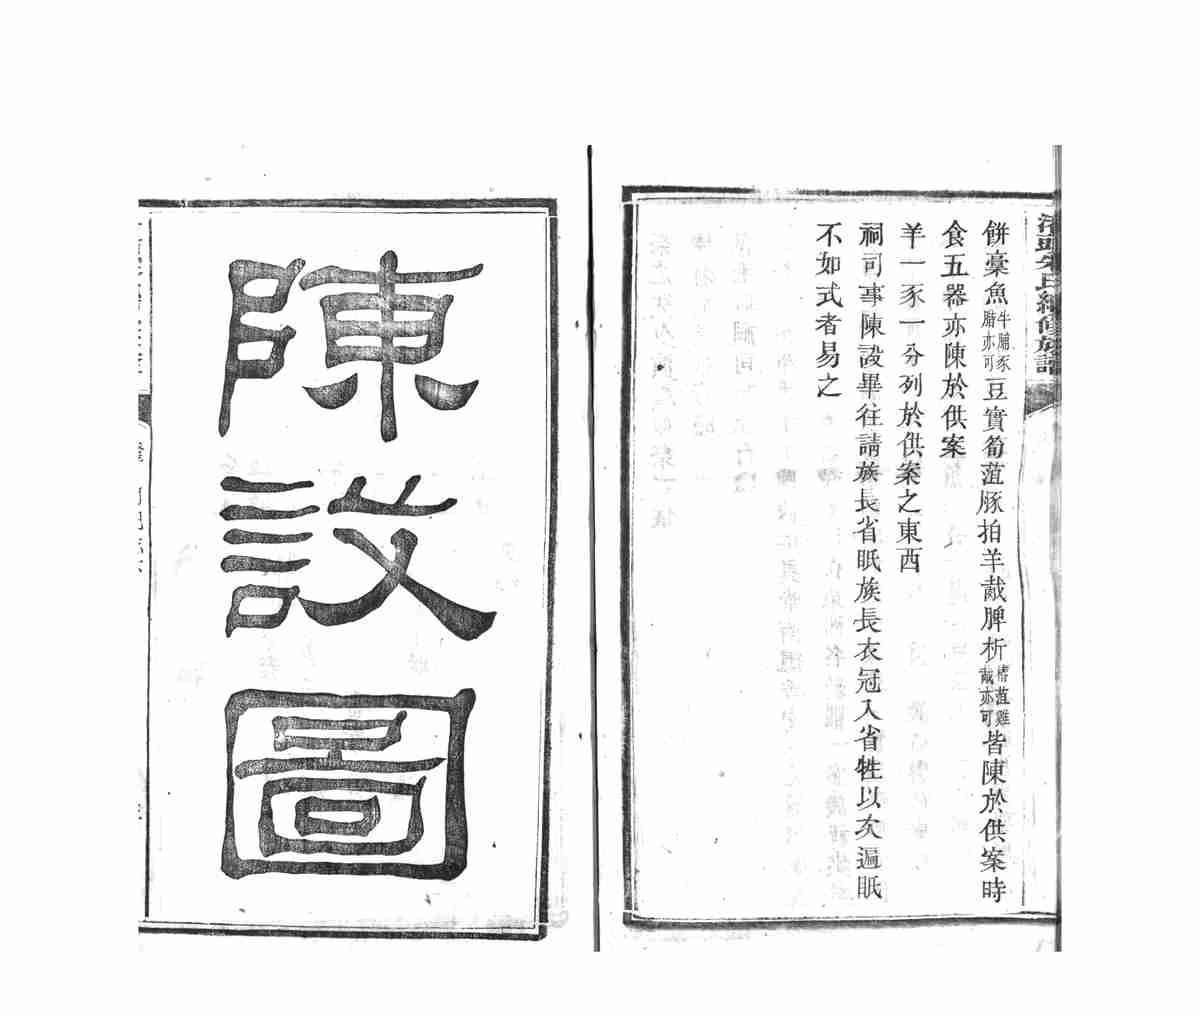 餅藁魚牛脯豕腊亦可豆實筍菹豚拍羊胾脾析褚菹雞胾亦可皆陳於供案時
食五器亦陳於供案
羊一豕一分列於供案之東西
祠司事陳設畢往請族長省眂族長衣冠入省牲以次遍眂
不如式者易之
陳設圖